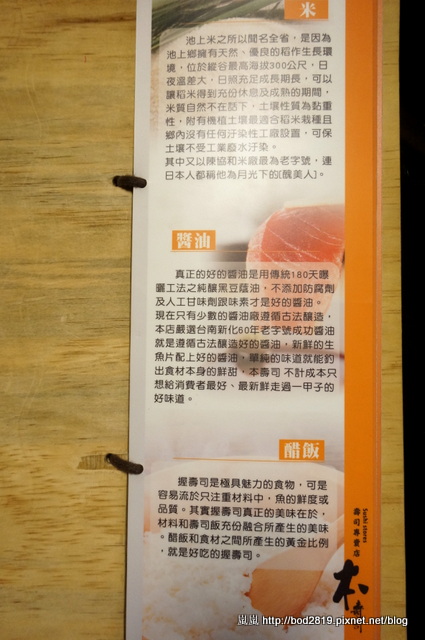 米
池上米之所以聞名全省，是因為
池上鄉擁有天然、優良的稻作生長環
境，位於縱谷最高海拔300公尺，日
夜溫差大，日照充足成長期長，可以
讓稻米得到充份休息及成熟的期間，
米質自然不在話下，土壤性質為黏重
性，附有機植土壤最適合稻米栽種且
鄉內沒有任何汙染性工廠設置，可保
土壤不受工業廢水汙染。
其中又以陳協和米廠最為老字號，連
日本人都稱他為月光下的[醜美人]。
醬油
真正的好的醬油是用傳統180天曝
曬工法之純釀黑豆蔭油，不添加防腐劑
及人工甘味劑跟味素才是好的醬油。
現在只有少數的醬油廠遵循古法釀造，
本店嚴選台南新化60年老字號成功醬油
就是遵循古法釀造好的醬油，新鮮的生
魚片配上好的醬油，單純的味道就能釣
出食材本身的鮮甜，本壽司 不計成本只
想給消費者最好、最新鮮走過一甲子的
好味道。
醋飯
握壽司是極具魅力的食物，可是
容易流於只注重材料中，魚的鮮度或
品質。其實握壽司真正的美味在於，
材料和壽司飯充份融合所產生的美味
。醋飯和食材之間所產生的黃金比例
，就是好吃的握壽司。
Sushi stores
壽司專賣店
本壽司
嵐嵐 http://bod2819.pixnet.net/blog